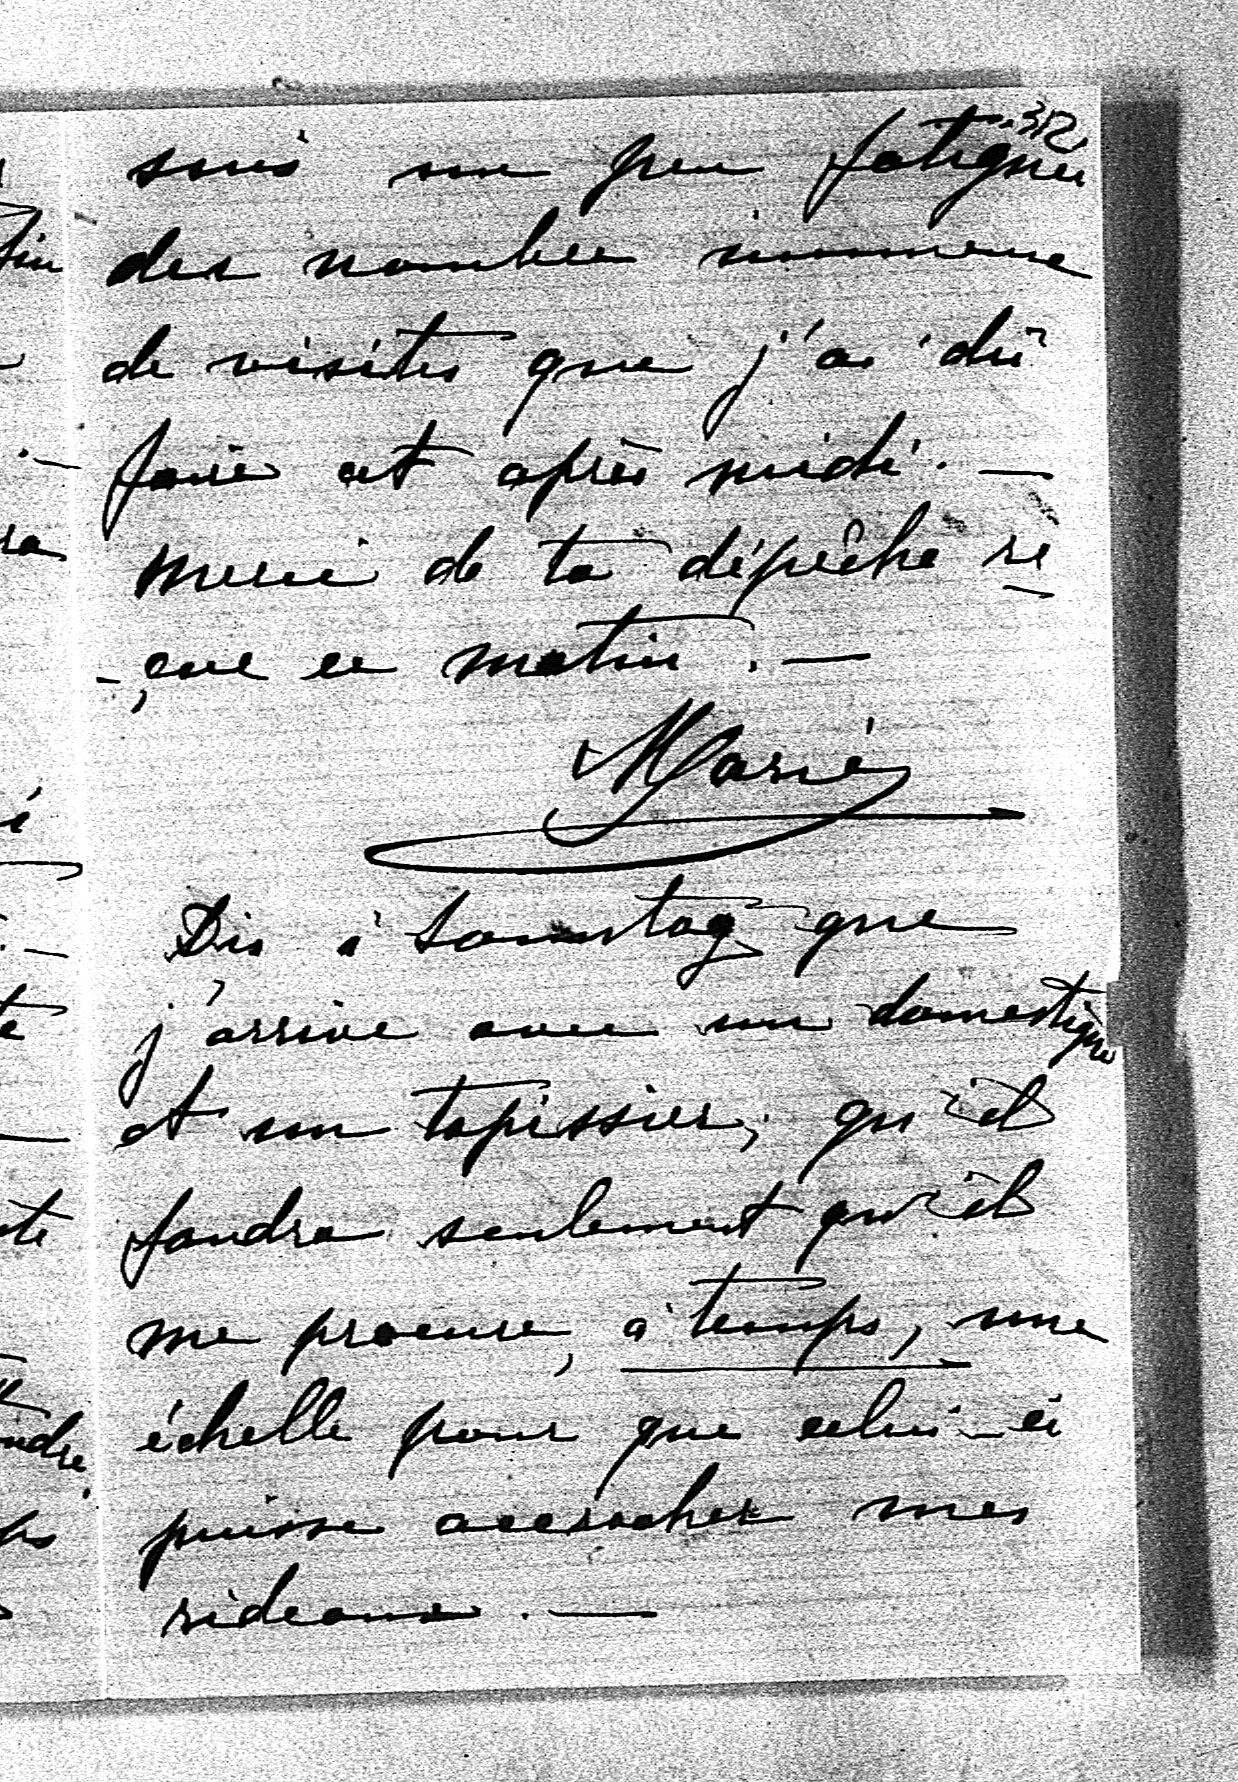 312
suis un peu fatiguée
des nombre immense
de visites que j'ai dû
faire cet après midi. —
Merci de ta dépêche re
-çue ce matin. —
Marie
Dis à Sonntag que
j'arrive avec un domestique
et un tapissier, qu'il
faudra seulement qu'il
me procure, à temps, une
échelle pour que celui-ci
puisse accrocher mes
rideaux. —